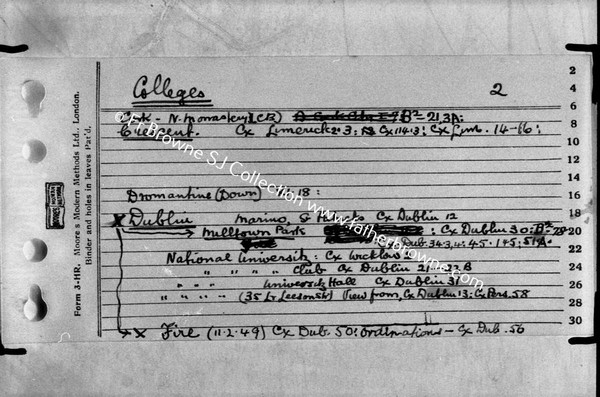 Colleges 2
Cork - N. Monastery (CB) B2 21, 3A:
Cx Limerick 2.3: Cx 114.3: Cx Lim. 14-16:
Dromantine (Down) 18:
X Dublin Marino, S Patricks Cx Dublin 12
Milltown Park : Cx Dublin 30: B2 28-20
Cx Dub. 34.3,4: 45. 51A.
National University: Cx Wicklow 2
" " " Club Cx Dublin 21-22 B
" " " University Hall Cx Dublin 31
" " " " (35 Lr Leeson St) View from, Cx Dublin 13: Cx Pers. 58
X X Fire (11.2.49) Cx Dub. 50: Ordinations - Cx Dub. 56
2
4
6
8
10
12
14
16
18
20
22
24
26
28
30
Form 3-HR. Moore's Modern Methods Ltd., London.
Binder and holes in leaves Pat'd.
© Fr Browne SJ Collection www.fatherbrowne.com